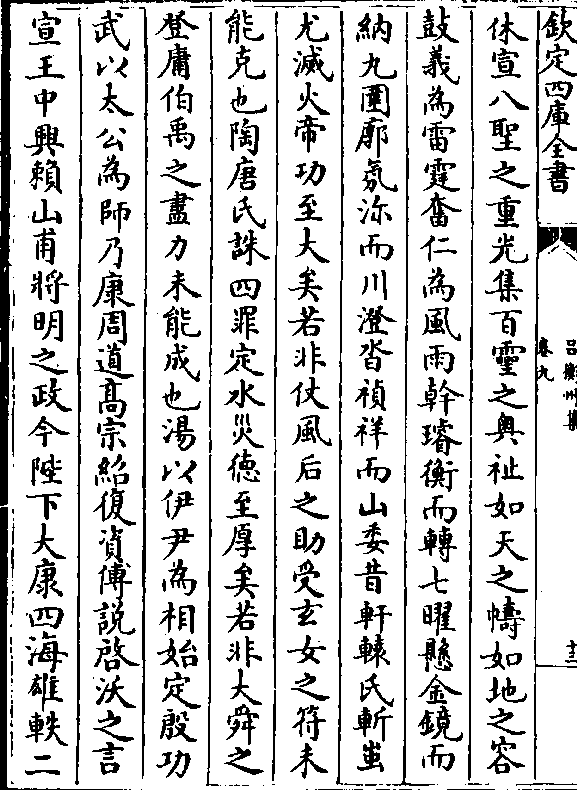 欽定四庫全書
呂衡州集
卷九
十二
休宣八聖之重光集百靈之奥祉如天之幬如地之容
鼓義為雷霆奮仁為風雨幹璿衡而轉七曜懸金鏡而
納九圍廓氛沴而川澄沓禎祥而山委昔軒轅氏斬蚩
尤滅火帝功至大矣若非仗風后之助受玄女之符未
能克也陶唐氏誅四罪定水災德至厚矣若非大舜之
登庸伯禹之盡力未能成也湯以伊尹為相始定殷功
武以太公為師乃康周道髙宗紹復資傅説啓沃之言
宣王中興賴山甫將明之政今陛下大康四海雄軼二